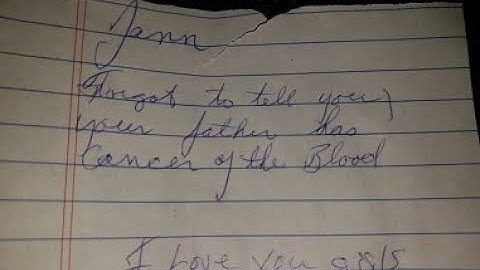 Jann
Forgot to tell you,
your father has
Cancer of the Blood
I Love you girls